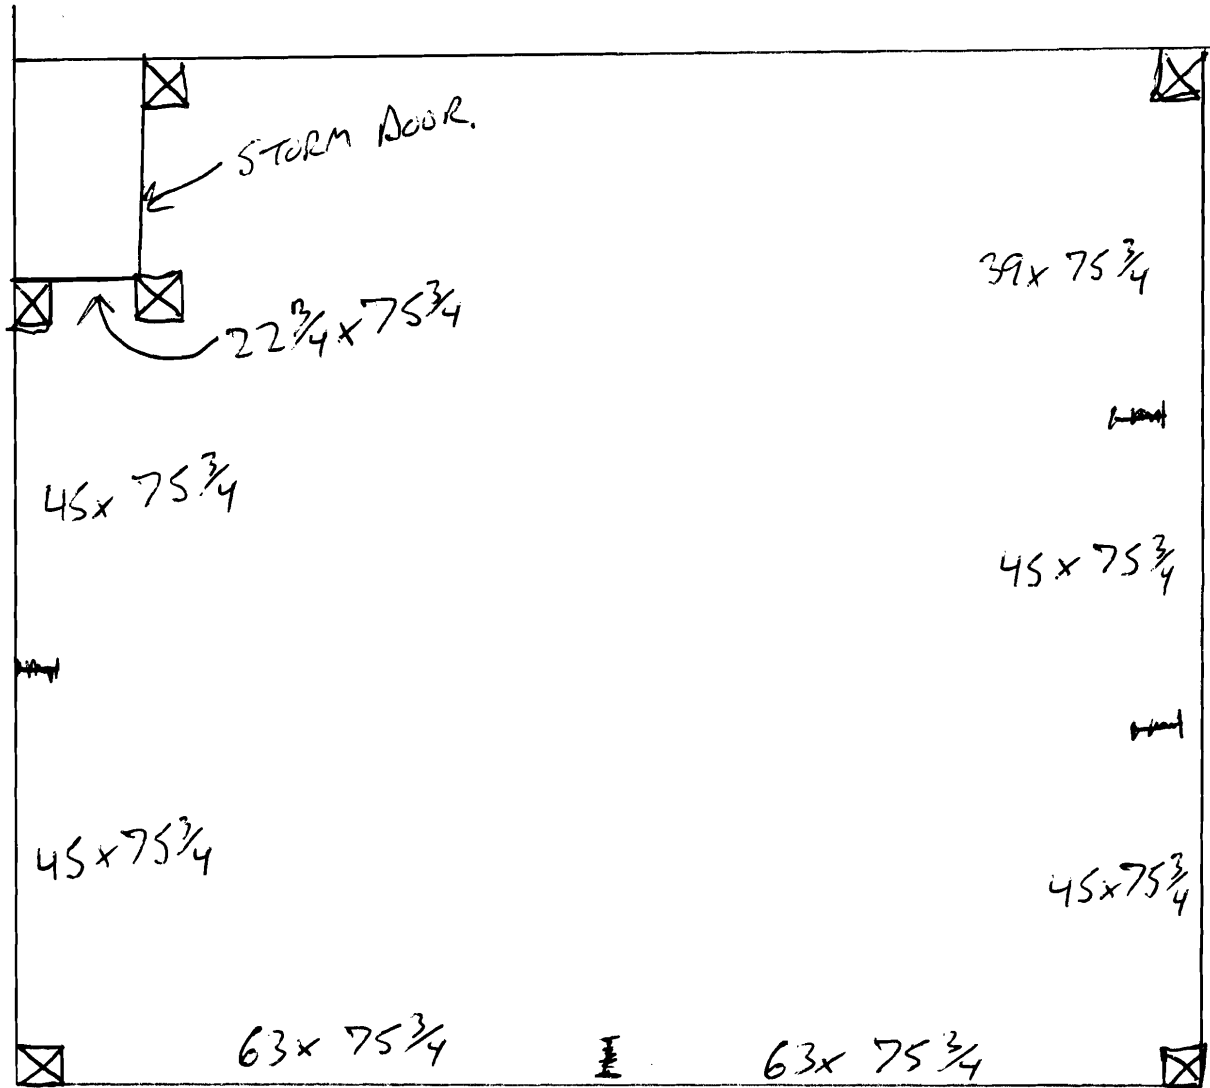 STORM DOOR.
39x 75 3/4
22 3/4 x 75 3/4
45x 75 3/4
45 x 75 3/4
45 x 75 3/4
45x75 3/4
63x 75 3/4
63x 75 3/4